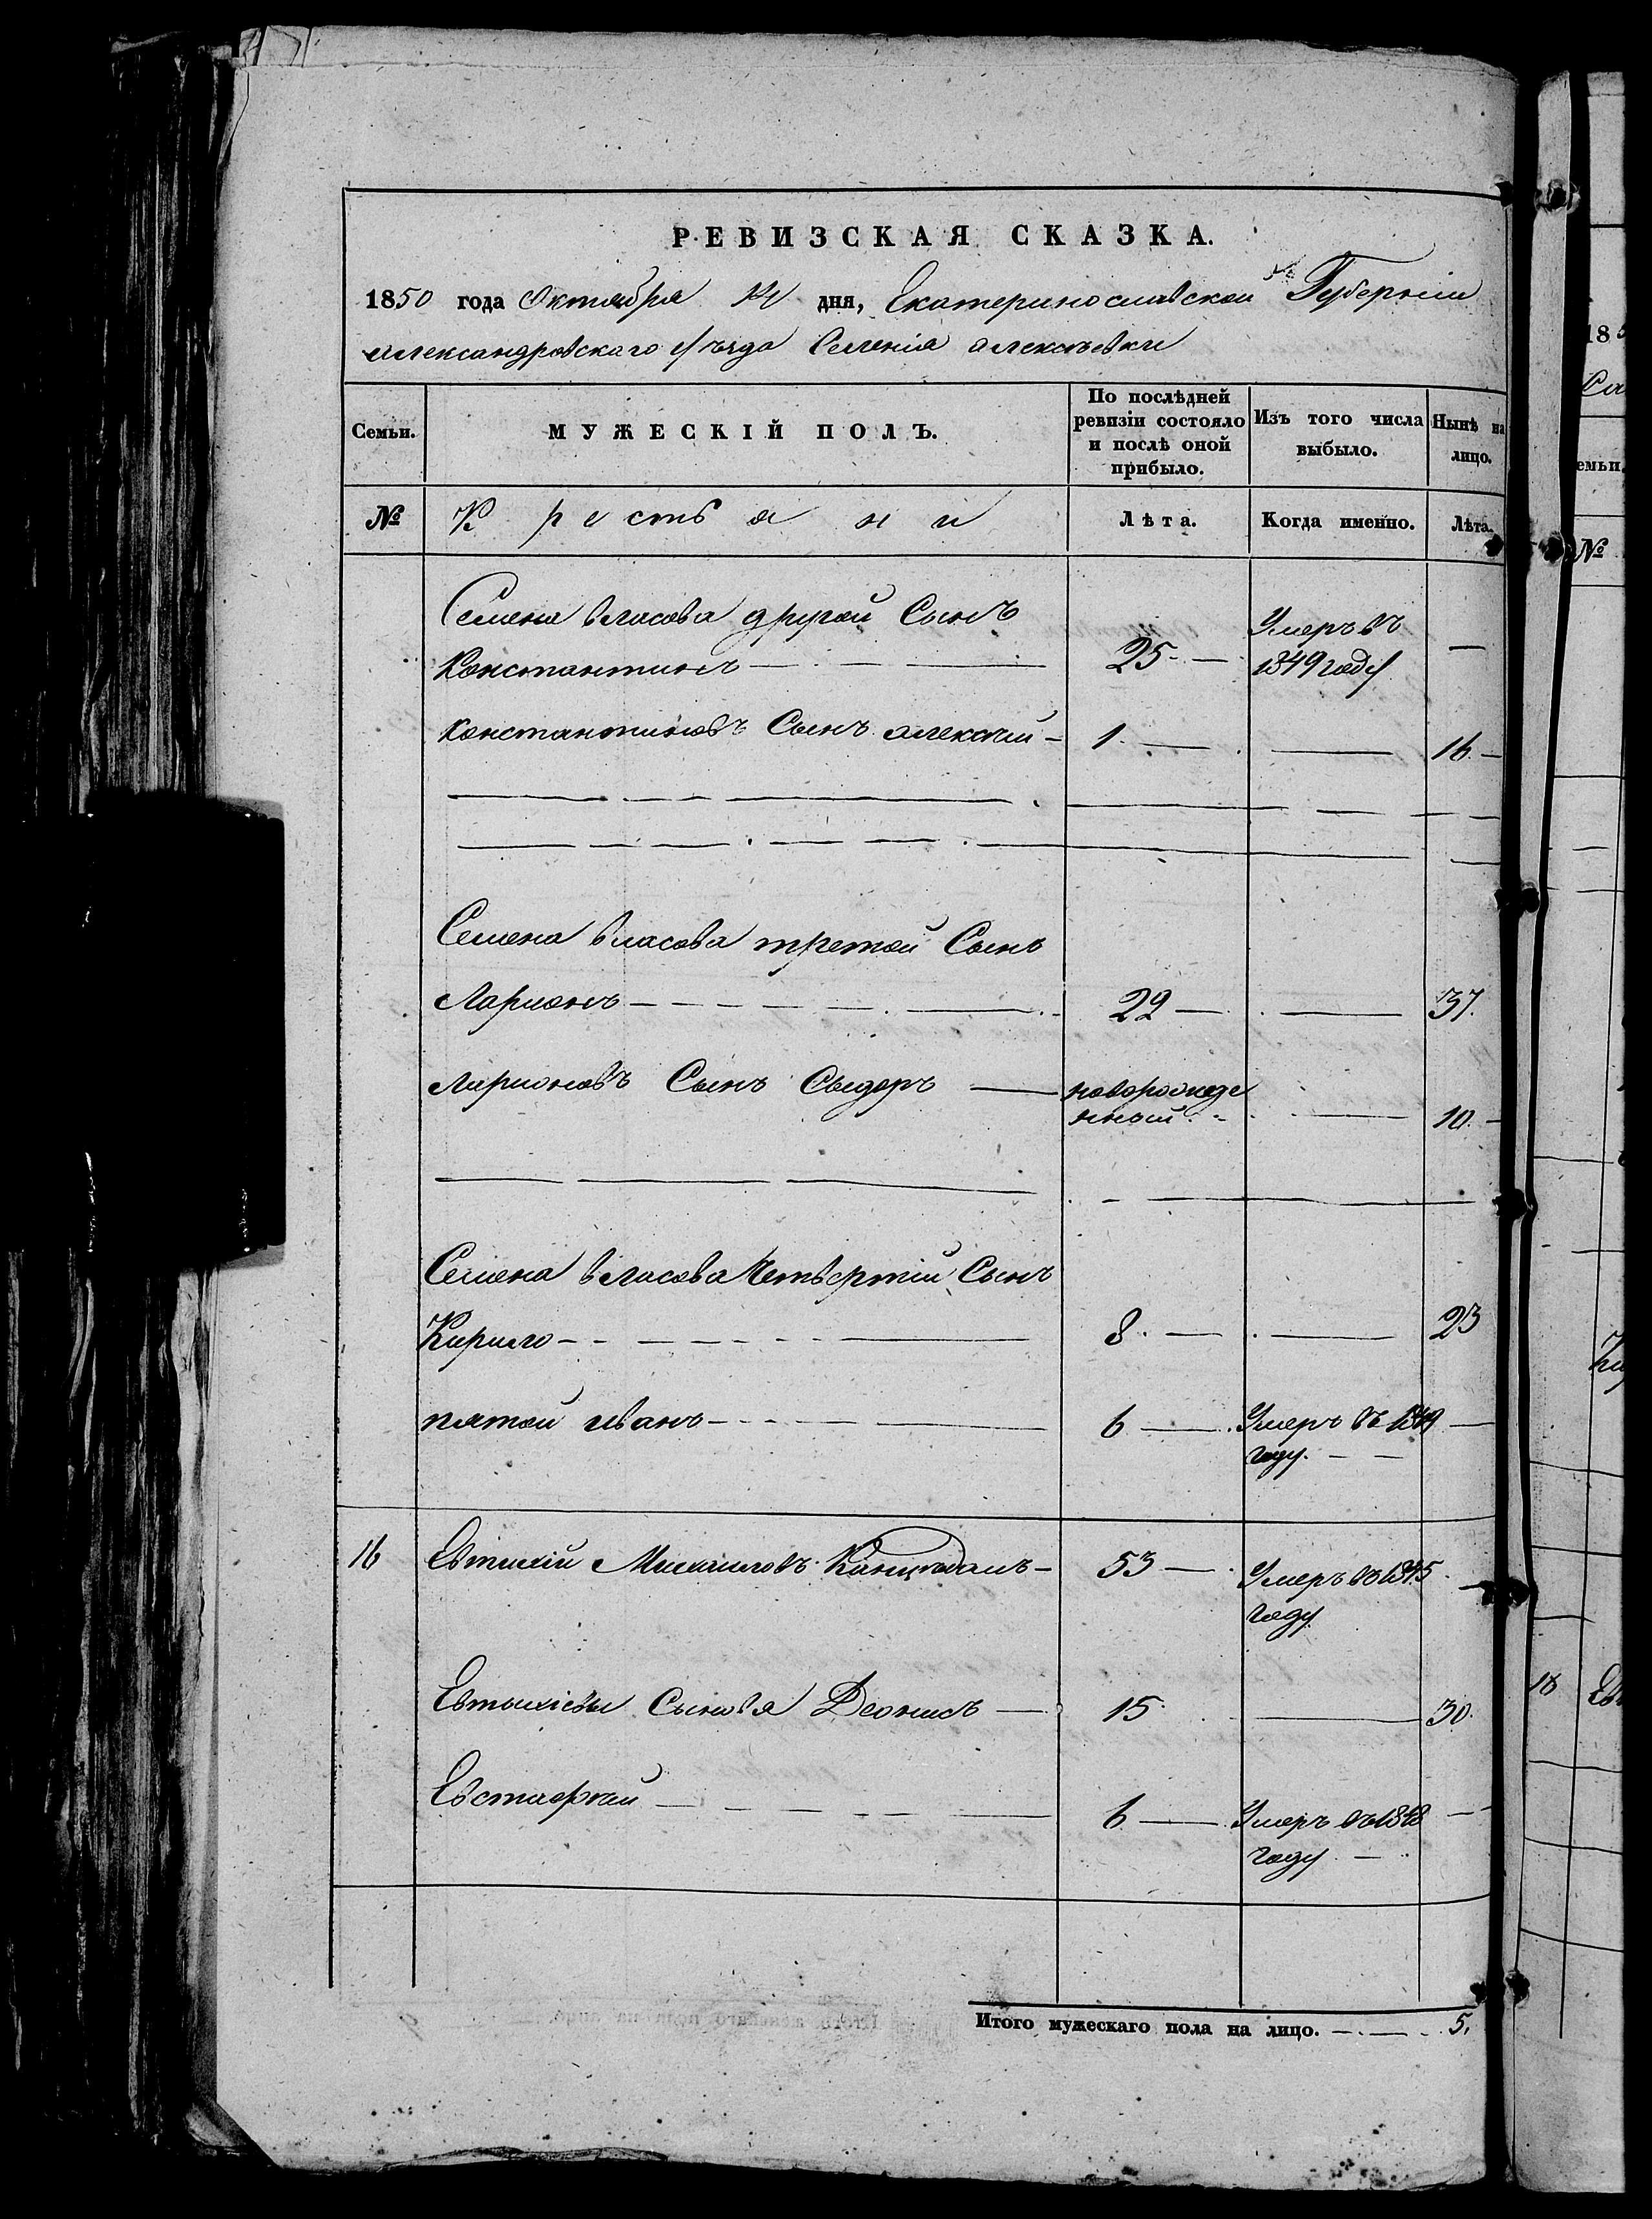 РЕВИЗСКАЯ СКАЗКА.
1850 года Октября дня, Екатеринославской Губерніи
александровскаго уѣзда Селенія алексѣевки
Семьи. МУЖЕСКІЙ ПОЛЪ. По послѣдней ревизіи состояло и послѣ оной прибыло. Изъ того числа выбыло. Нынѣ на лицо.
№ Крестьяни Лѣта. Когда именно. Лѣта.
Семена власова другой Сынъ
Константинъ 25 Умеръ въ 1849 году —
константиновъ Сынъ алексѣй 1 — 16
Семена власова третой Сынъ
Ларионъ 22 — 37.
Ларионовъ Сынъ Сыдоръ новорожде нный — 10
Семена власова Четвертій Сынъ
Кирило 8 — 23
пятой иванъ 6 Умеръ въ 1849 году —
16 Евтихій Михаиловъ 53 Умеръ въ 1845 году —
Евтыхіевы Сыновя Деонисъ 15 — 30.
Евстафий 6 Умеръ въ 1848 году —
Итого мужескаго пола на лицо. 5.
185
емьи.
№
18